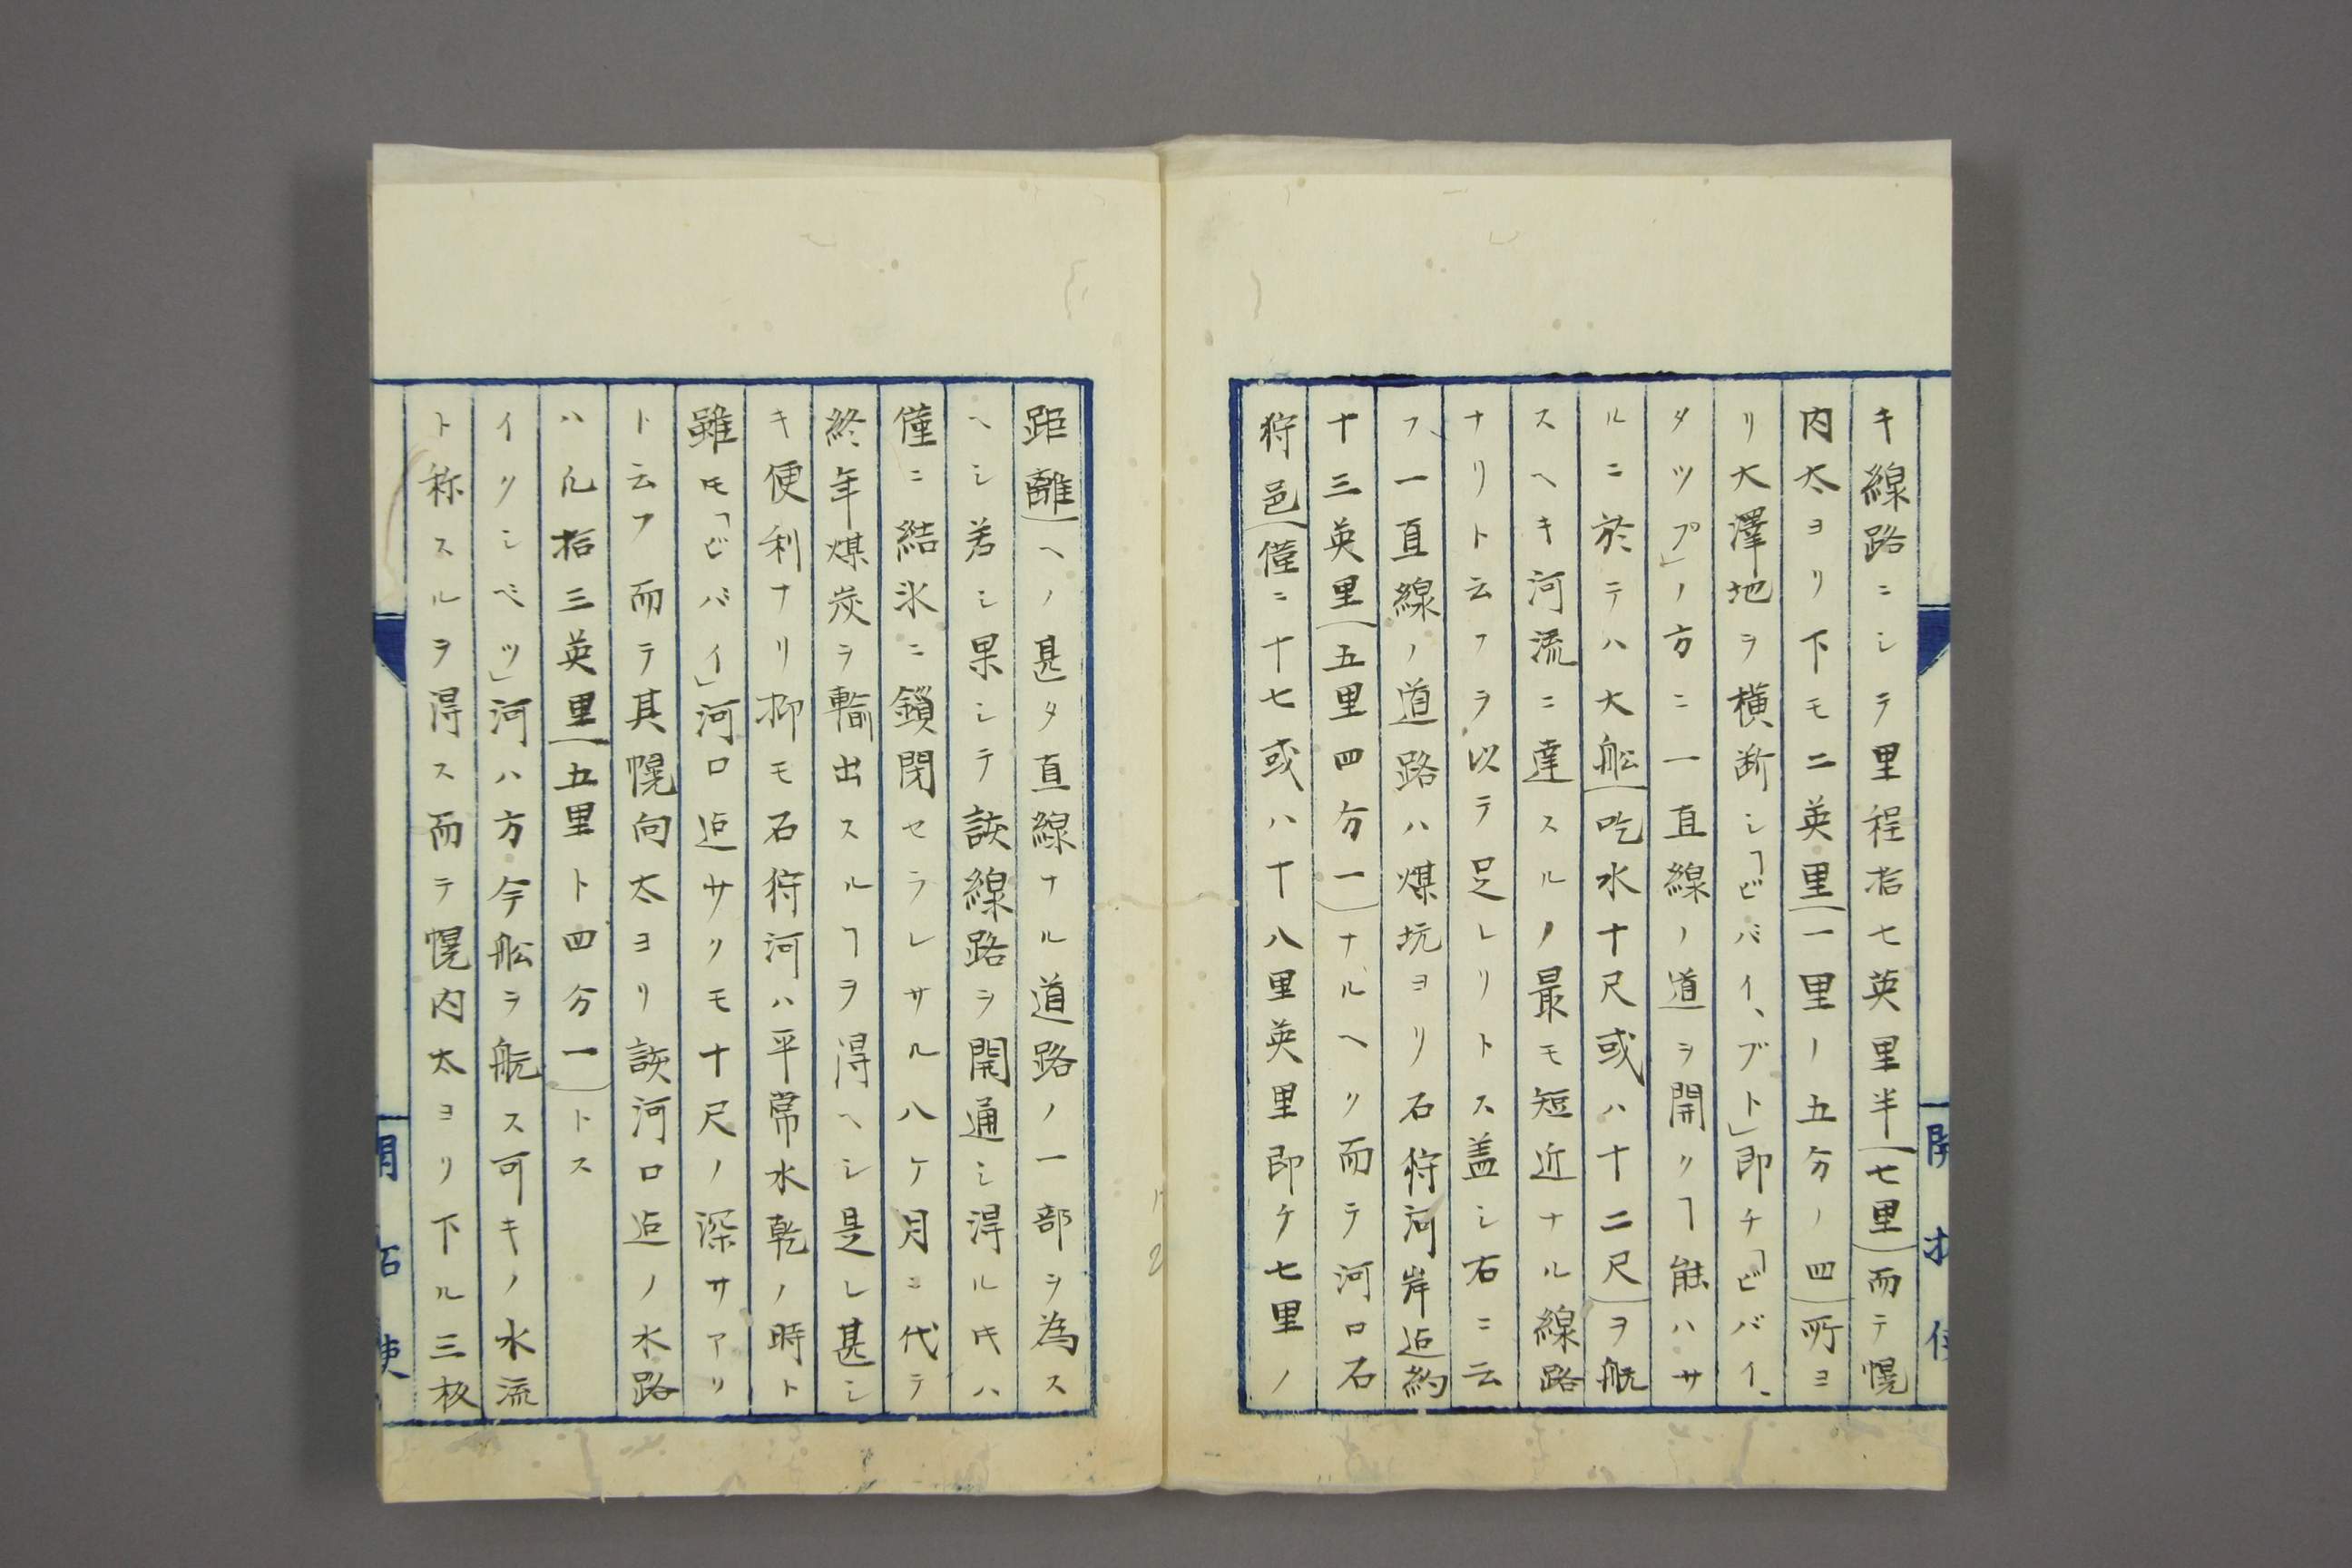 キ線路ニシテ里程凡七英里半(七里)而テ幌
内太ヨリ下モ二英里(一里ノ五分ノ四)所ヨ
リ大澤地ヲ横断シ「ビバイ、ブト」即チ「ビバイ、
タツプ」ノ方ニ一直線ノ道ヲ開クヿ能ハサ
ルニ於テハ大舩(吃水十尺或ハ十二尺)ヲ航
スヘキ河流ニ達スルノ最モ短近ナル線路
ナリト云フヲ以テ足レリトス盖シ右ニ云
フ、一直線ノ道路ハ煤坑ヨリ石狩河岸迠約
十三英里(五里四分一)ナルヘリ而テ河口石
狩邑(僅ニ十七或ハ十八里英里即チ七里ノ
距離)ヘノ甚タ直線ナル道路ノ一部ヲ為ス
ヘシ若シ果シテ該線路ヲ開通シ得ル𪜈ハ
僅ニ結氷ニ鎖閉セラレサル八ケ月ニ代テ
終年煤炭ヲ輸出スルヿヲ得ヘシ是レ甚シ
キ便利ナリ抑モ石狩河ハ平常水乾ノ時ト
雖モ「ビバイ」河口迠サリモ十尺ノ深サアリ
ト云フ而テ其幌向太ヨリ該河口迠ノ水路
ハ凡拾三英里(五里ト四分一)トス
イクシベツ」河ハ方今舩ヲ航ス可キノ水流
ト称スルヲ得ス而テ幌内太ヨリ下ル三板
開拓使